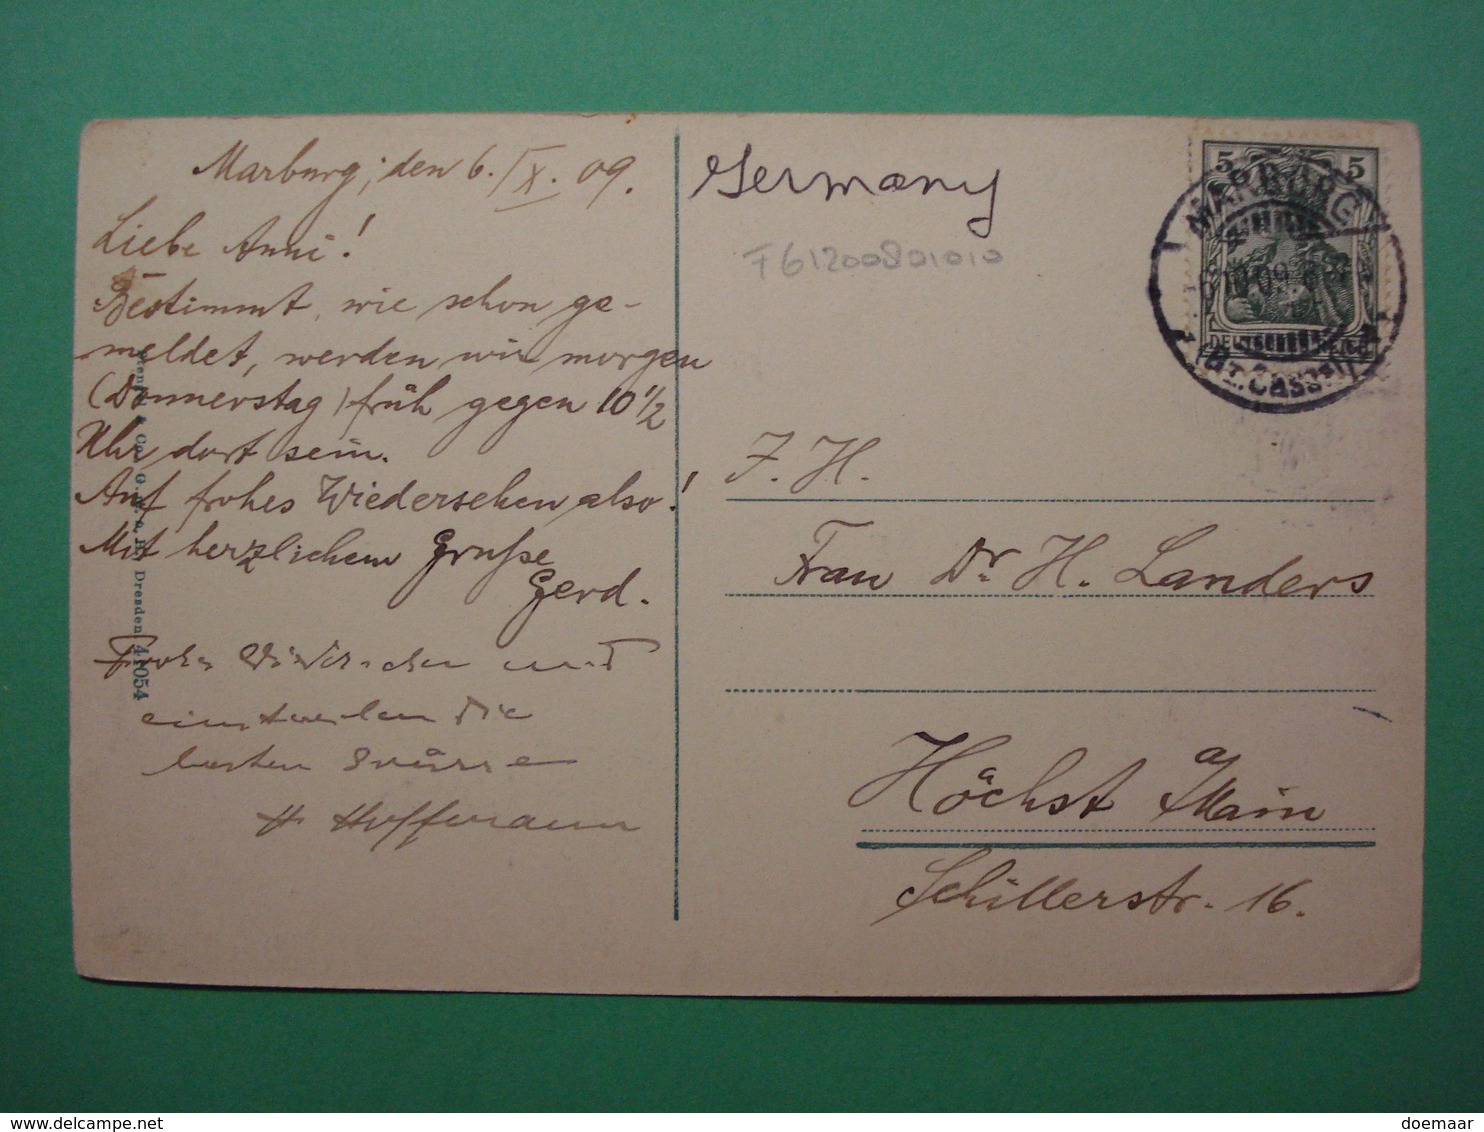 Marburg, den 6./X. 09.
Liebe Anni!
Bestimmt, wie schon ge-
meldet, werden wir morgen
(Donnerstag) früh gegen 10 1/2
Uhr dort sein.
Auf frohes Wiedersehen also!
Mit herzlichem Gruße
Gerd.
Frohes Wiedersehen und
einstweilen die
besten Grüsse
H Hoffmann
& Co., G. m. b. H., Dresden 41054
Germany
F61200801010
5 5
MARBURG
10.09.
(BZ. CASSEL)
DEUTSCHES REICH
F. H.
Frau Dr. H. Landers
Höchst a/Main
Schillerstr. 16.
doemaar